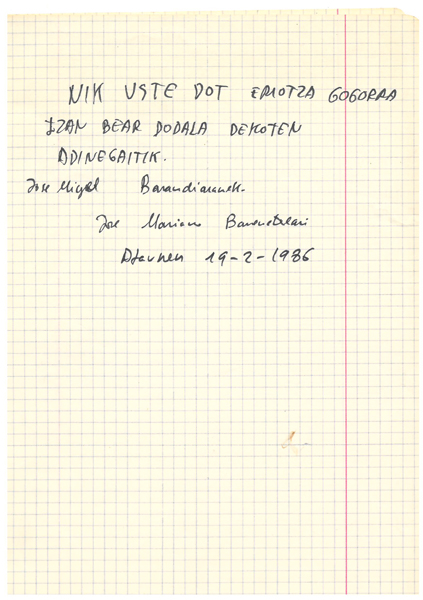 NIK USTE DOT EMOTZA GOGORRA
IZAN BEAR DODALA DEKOTEN
ADINEGAITIK.
Jose Migel Barandiaranek.
Jose Mariano
Ataunen 19-2-1986